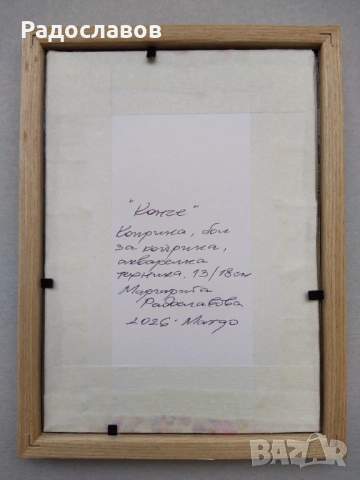 Радославов
"Конче"
Коприна, бои
за коприна,
акварелна
техника, 13/18см
Маргарита
Радославова
2026.
BAZAR